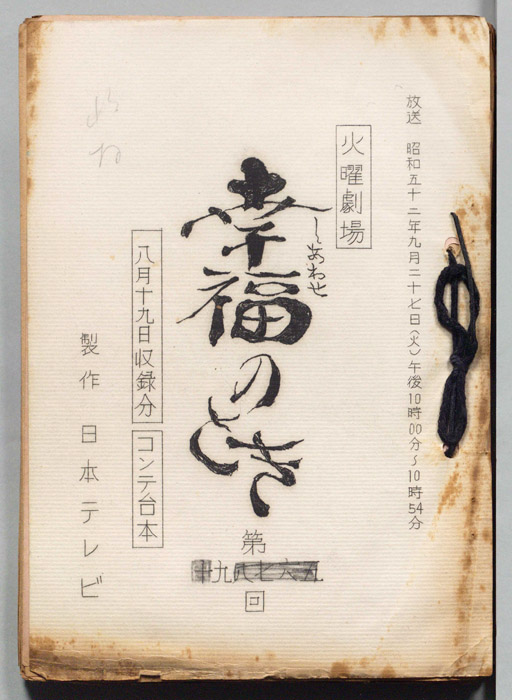 放送 昭和五十二年九月二十七日(火)午後10時00分〜10時54分
火曜劇場
しあわせ
幸福のとき
第
九
回
八月十九日収録分
コンテ台本
製作 日本テレビ